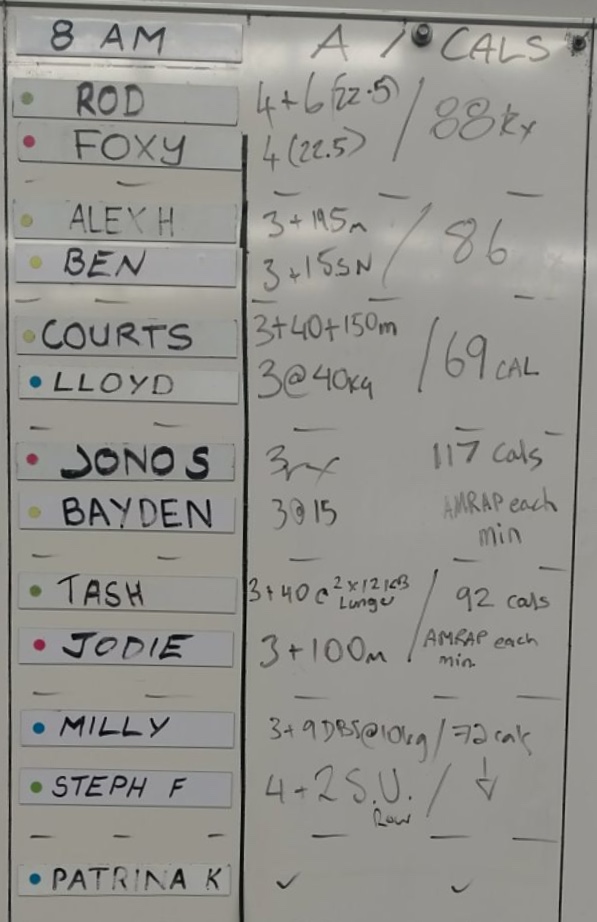 8 AM A / CALS
ROD 4+6(22.5) / 88 Rx
FOXY 4(22.5)
ALEX H 3+195m / 86
BEN 3+15SN
COURTS 3+40+150m / 69 CAL
LLOYD 3@40kg
JONO S 3rx 117 cals
BAYDEN 3@15 AMRAP each
min
TASH 3+40c 2x12KB / 92 cals
Lunge
JODIE 3+100m AMRAP each
min
MILLY 3+9DBS@10kg / 72 cals
STEPH F 4+2 S.U. / ↓
Row
PATRINA K ✓ ✓